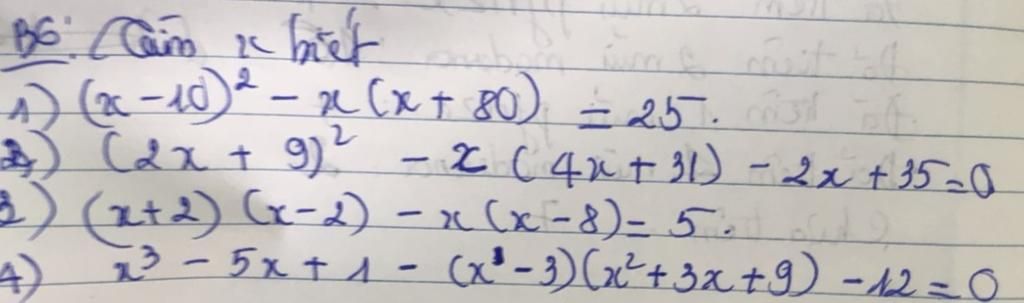 B6: Tìm x biết
1) (x - 10)² - x(x + 80) = 25.
2) (2x + 9)² - x(4x + 31) - 2x + 35 = 0
3) (x+2)(x-2) - x(x-8) = 5.
4) x³ - 5x + 1 - (x - 3)(x² + 3x + 9) - 12 = 0